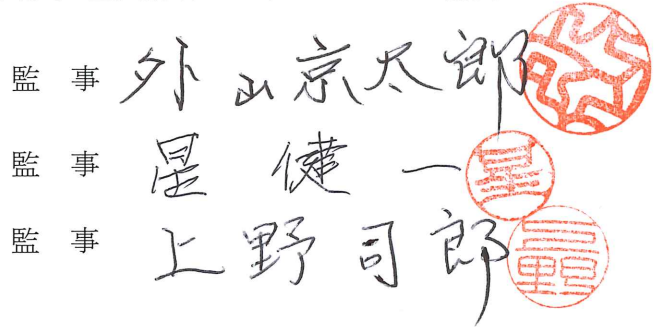 監事 外山京太郎
監事 星健一 星
監事 上野司郎 上野